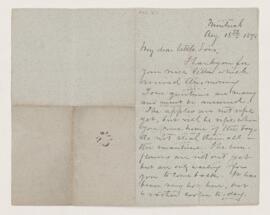 Aug 18th 18
My dear little
Thank you for
your nice letter which
arrived this morning
Your questions are many
and must be answered.
The apples are not ripe
yet, but will be ripe when
you come home if the boys
do not steal them all in
the meantime. The
are not out yet
but are only waiting for
you to come back. It has
been very hot here, but
is cooler to day.